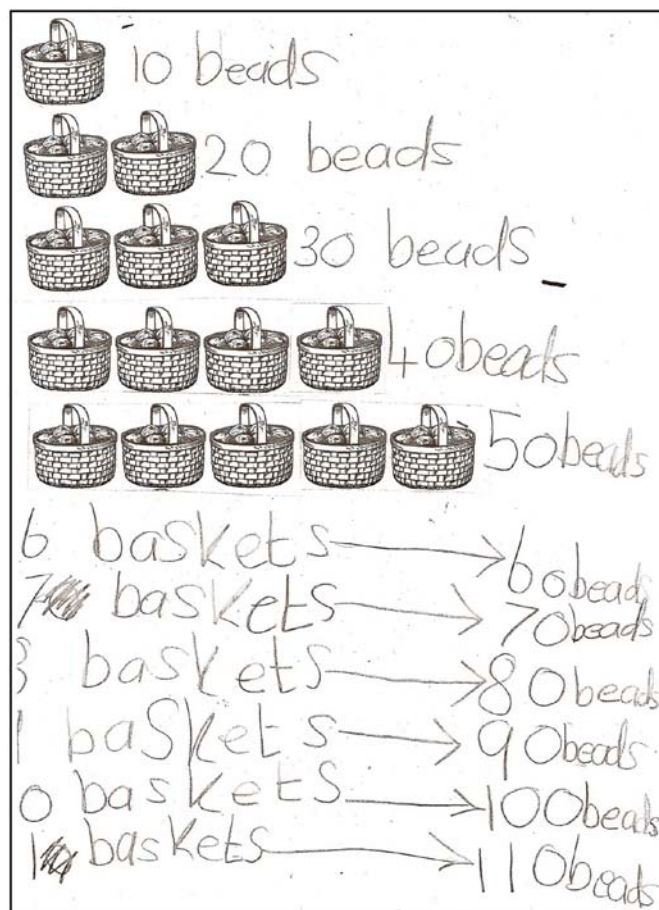 10 beads
20 beads
30 beads
40beads
50beads
6 baskets 60beads
7 baskets 70beads
baskets 80beads
baskets 90beads
0 baskets 100beads
1 baskets 110beads